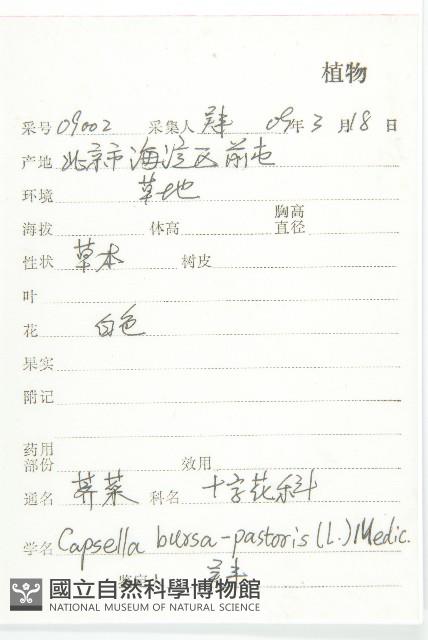 植物
采号 09002 采集人 09年3月18日
产地 北京市海淀区前屯
环境 草地
海拔 体高 胸高直径
性状 草本 树皮
叶
花 白色
果实
附记
药用部份 效用
通名 荠菜 科名 十字花科
学名 Capsella bursa-pastoris (L.) Medic.
鉴定人
國立自然科學博物館
NATIONAL MUSEUM OF NATURAL SCIENCE